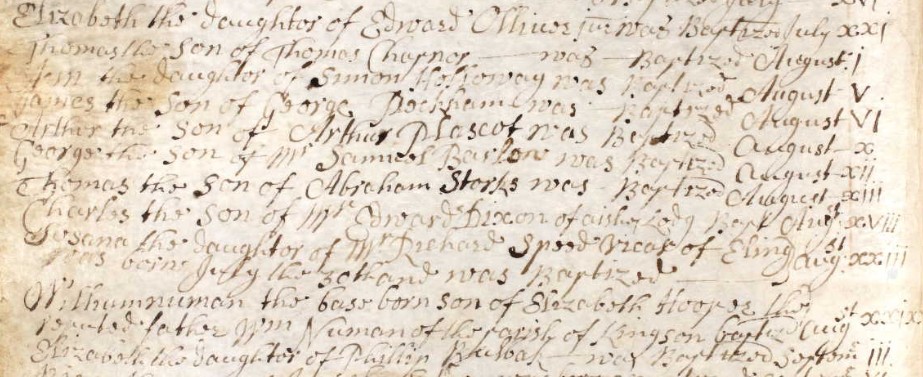 Elizabeth the daughter of Edward Olliver junr was Baptized July XXI
Thomas the Son of Thomas was Baptized August I
Ann the daughter of Simon Holloway was Baptized August V
James the Son of George Peckham was Baptized August VI
Arthur the Son of Arthur Plascot was Baptized August X
George the Son of Mr Samuell Barlow was Baptized August XII
Thomas the Son of Abraham Storks was Baptized August XIII
Charles the Son of Mr Edward Dixon of Bapt Augst XVIII
Susana the daughter of Mr Richard Speed Vicar of Eling Augst XXIII
was borne July the 30th and was Baptized
the base born Son of Elizabeth Hooper the
reputed father Wm Numan of the parish of Kingson baptized Augst
Elizabeth the daughter of Phillip was Baptized Septemr III